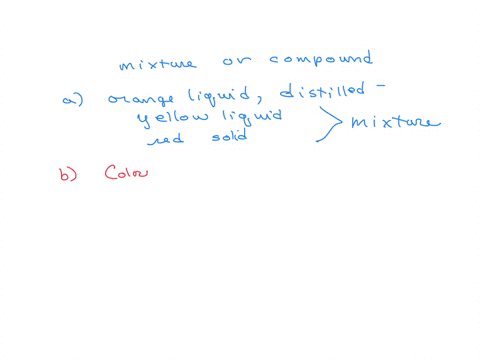 mixture or compound
a) orange liquid, distilled -
yellow liquid
red solid
mixture
b) Color